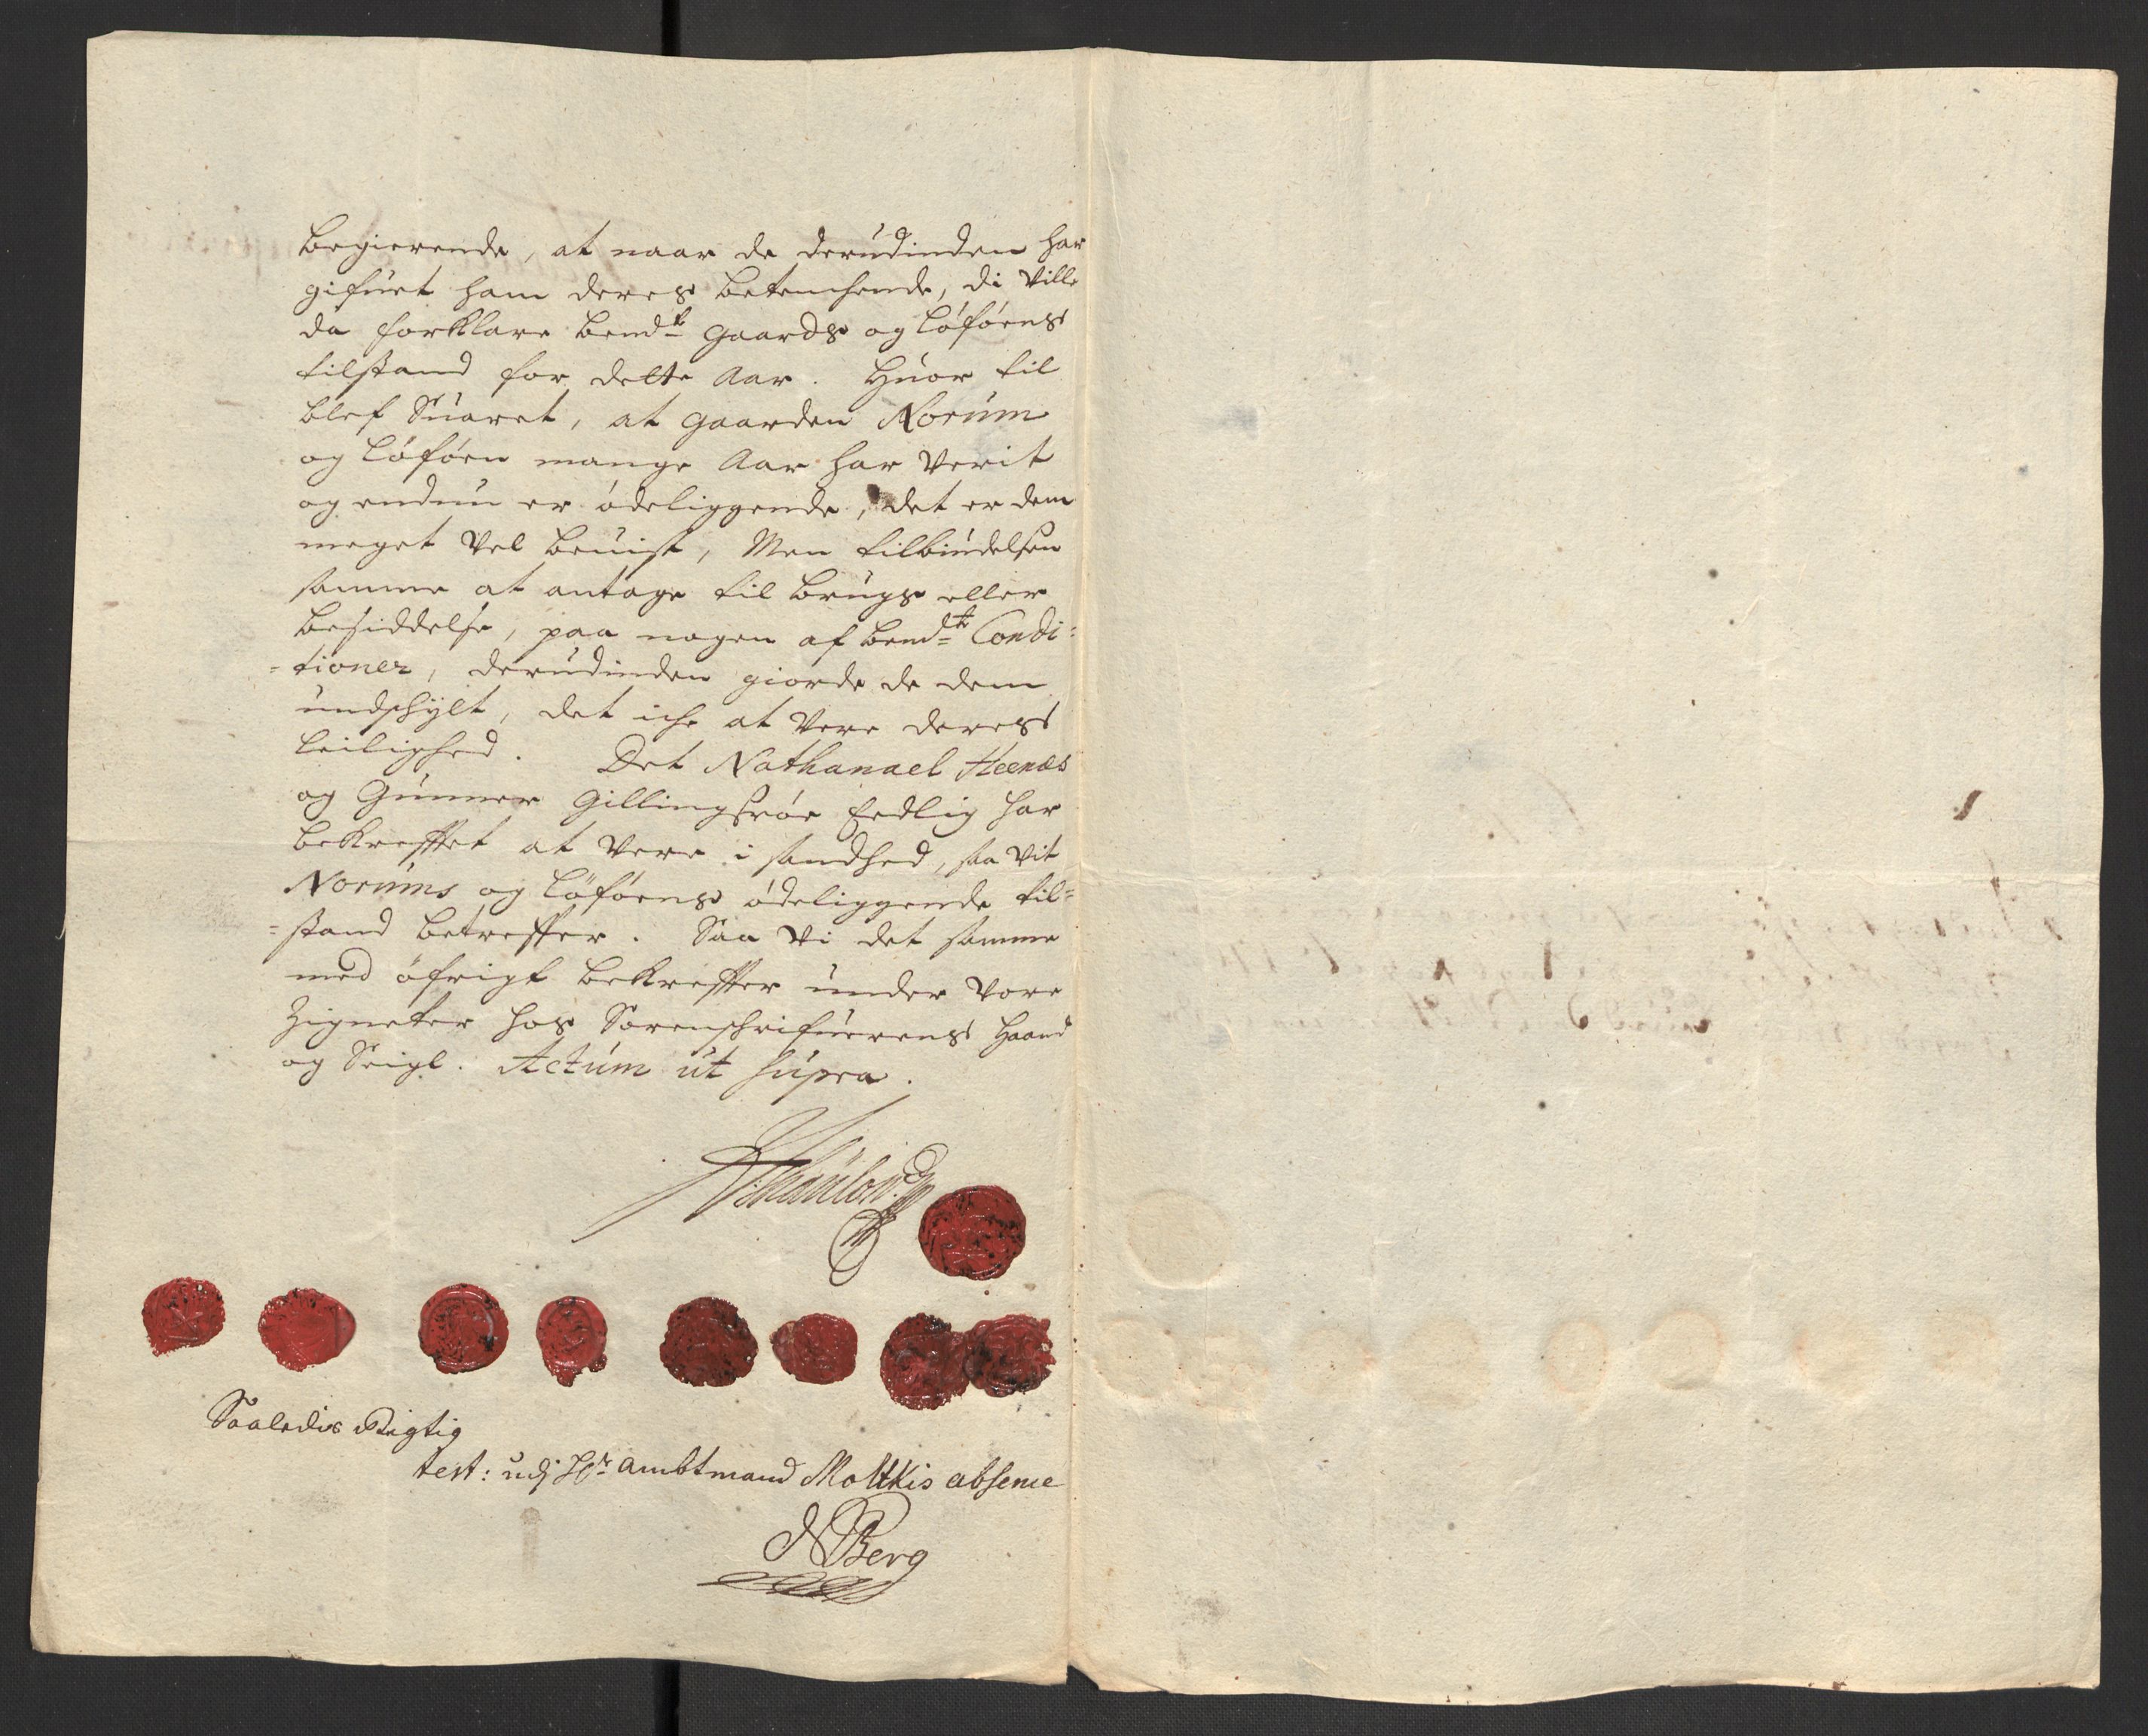 begierende, at naar de derudinden har
gifuet ham deres betenchende, di ville
da forklare bemdte gaards og Löföens
tilstand for dette Aar. Huor til
blef Suaret, at gaarden Norum
og Löföen mange Aar har verit
og endnu er ödeliggende, det er dem
meget vel beuist, Men tilbindelsen
samme at antage til brugs eller
besiddelse, paa nogen af bemdte Condi=
=tioner, derudinden giorde de dem
undschylt, det iche at vere deres
leilighed. Det Nathanael Heenæs
og Gunner Gillingsrör Eedlig har
bekrefftet at vere i sandhed, saa vit
Norums og Löföens ödeliggende til=
=stand betreffer. Saa vi det samme
med öfrigt bekreffter under vore
Zigneter hos Sorenschrifuerens Haand
og Seigl. Actum ut supra.
Saaledis Rigtig
test: udj Hr Ambtmand Moltkis absence
Berg